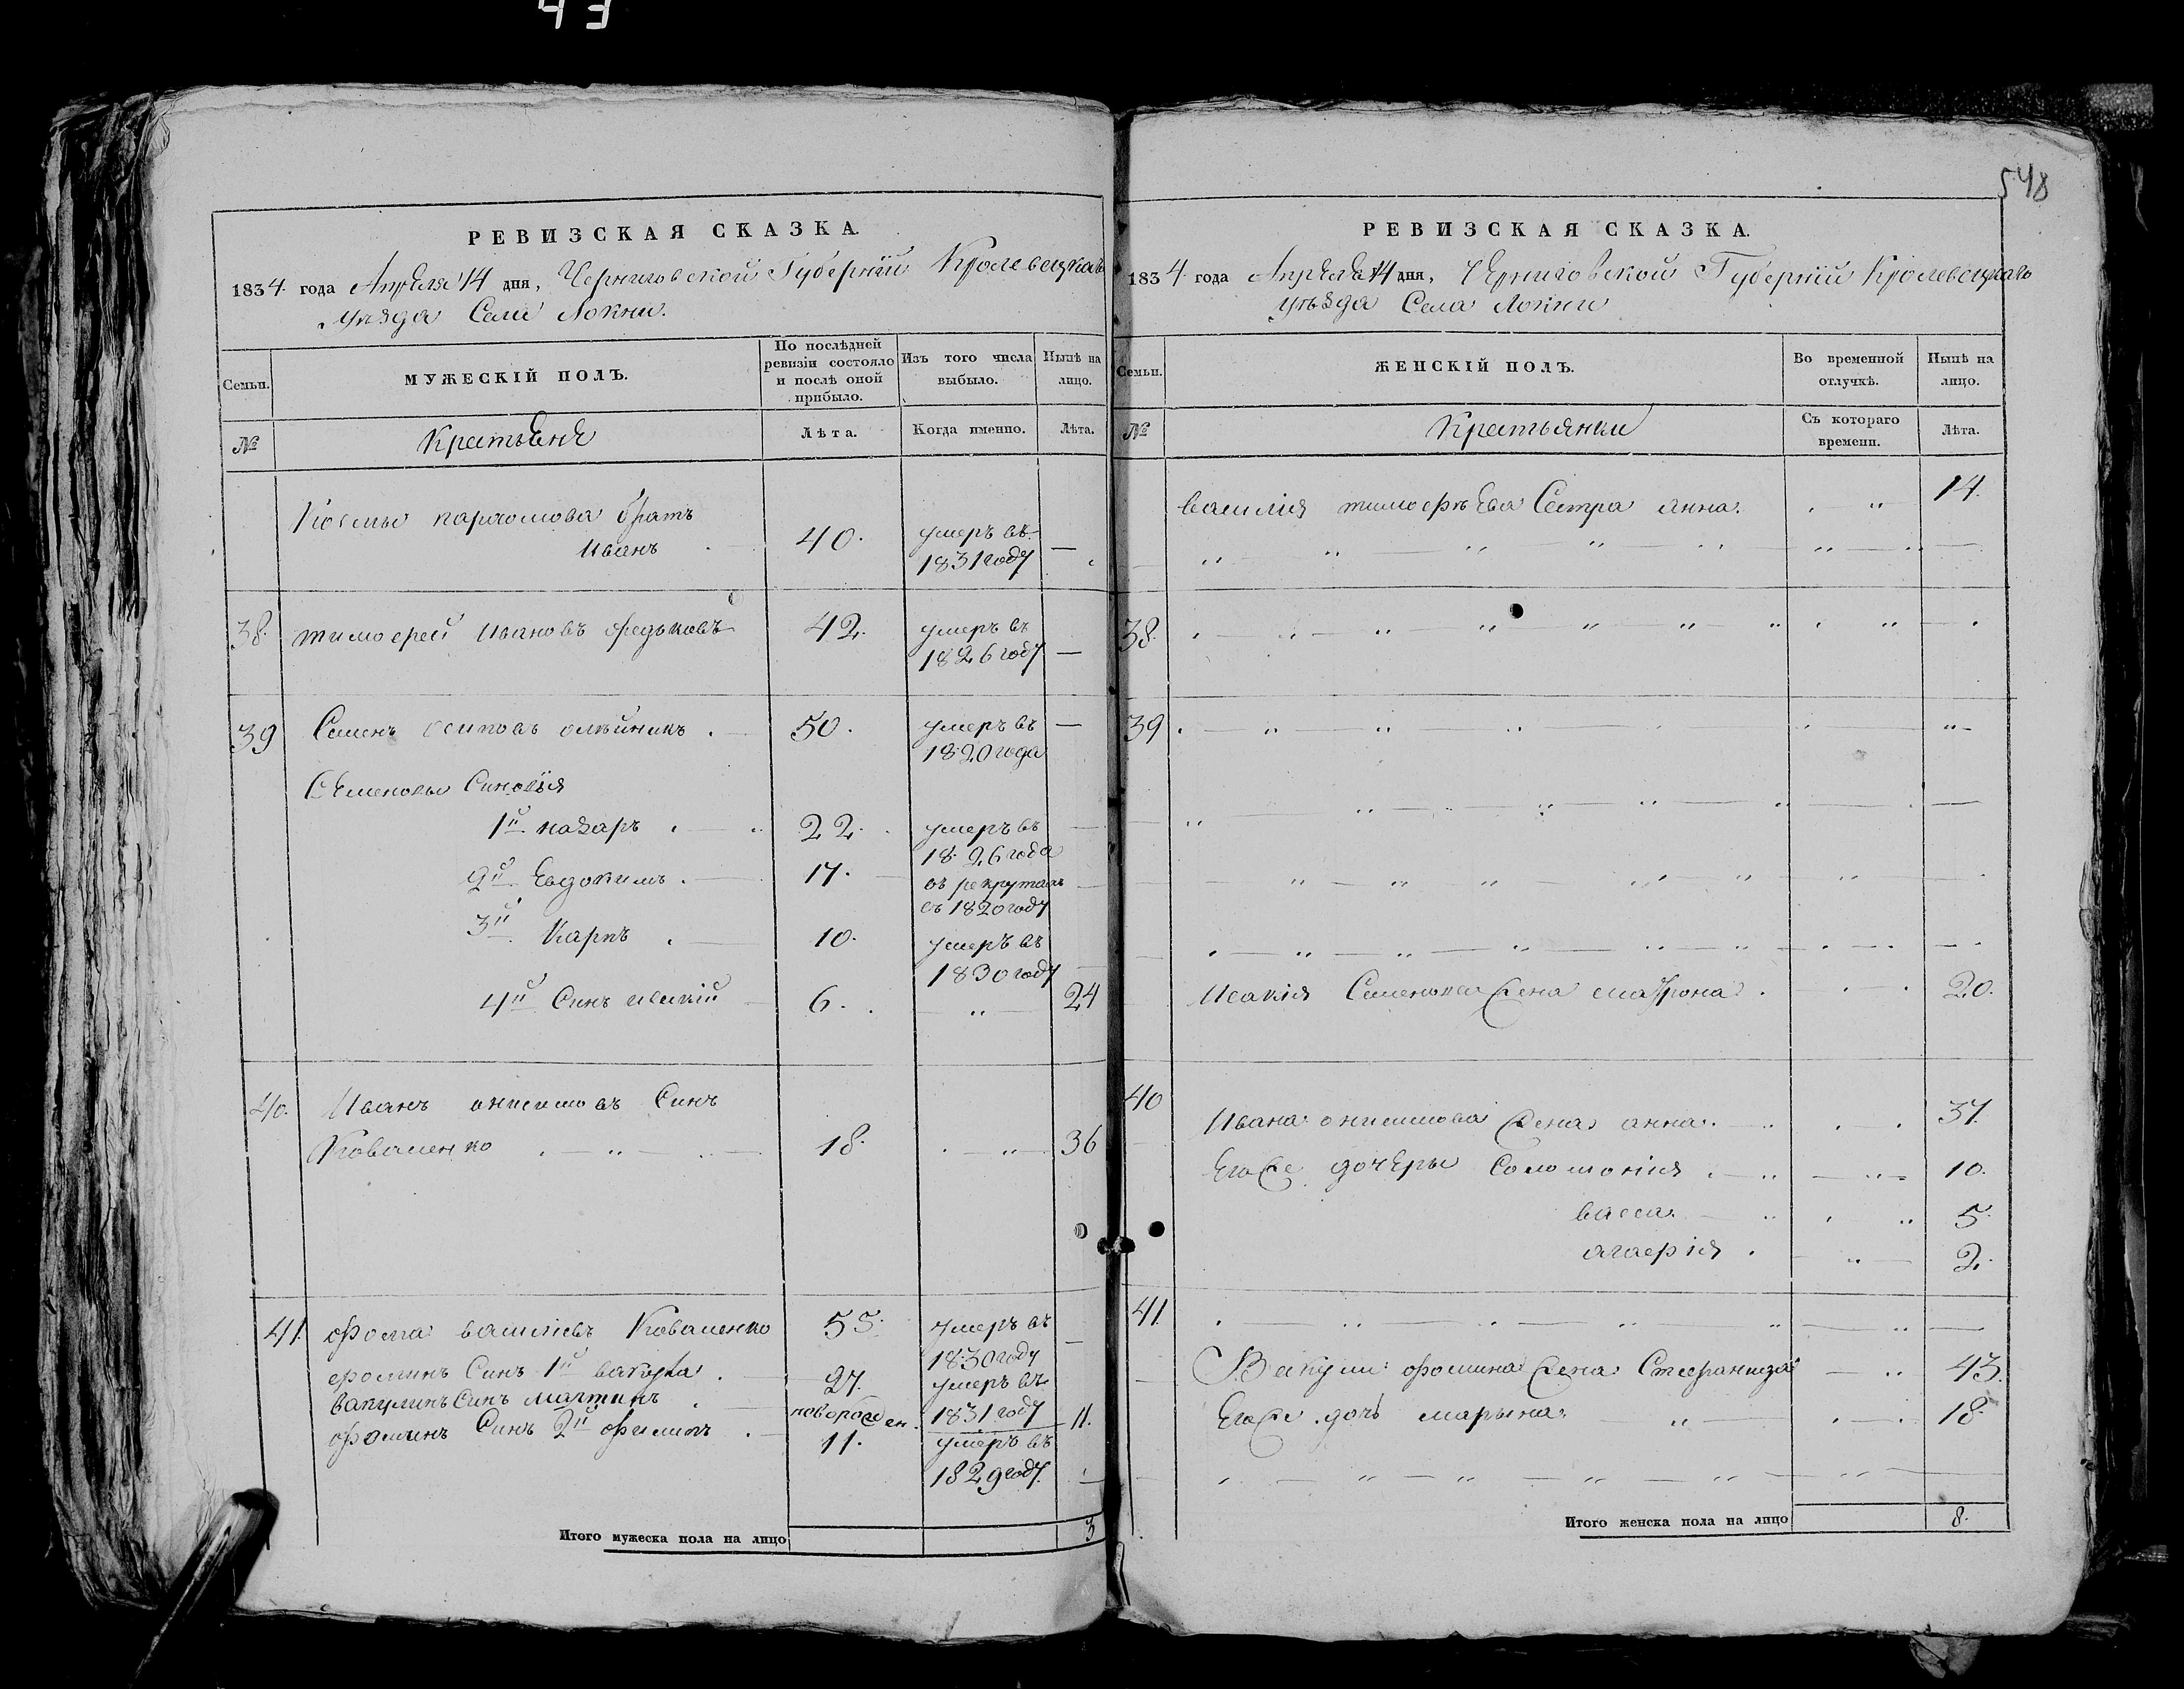 43
548
РЕВИЗСКАЯ СКАЗКА.
1834. года Апреля 14 дня, Черниговской Губернїи Кролевецкаго
уѣзда Села Локни.
Семьи.
МУЖЕСКІЙ ПОЛЪ.
По послѣдней ревизіи состояло и послѣ оной прибыло.
Изъ того числа выбыло.
Нынѣ на лицо.
№
Крестьяне
Лѣта.
Когда именно.
Лѣта.
Космы пархомова братъ
Иванъ 40. умеръ въ 1831 году —
38. тимофей Ивановъ федьковъ 42. умеръ въ 1826 году —
39 Семенъ осиповъ олѣйникъ 50. умеръ въ 1820 года —
Семеновы Синовїя
1й назаръ 22. умеръ въ 1826 года —
2й Евдокимъ 17. въ рекрутахъ съ 1820 году —
3й Карпъ 10. умеръ въ 1830 году —
4й Синъ исакїй 6. " 24
40. Иванъ онисимовъ Синъ
Коваленко 18. " 36
41. фома василиевъ Коваленко 55. умеръ въ 1830 году —
фоминъ Синъ 1й вакула 27. умеръ въ 1831 году
вакулинъ Синъ мартинъ новорожден. 11.
фоминъ Синъ 2й филипъ 11. умеръ въ 1829 году —
Итого мужеска пола на лицо 3
РЕВИЗСКАЯ СКАЗКА.
1834 года Апреля 14 дня, Черниговской Губернїи Кролевецкаго
уѣзда Села Локни
Семьи.
ЖЕНСКІЙ ПОЛЪ.
Во временной отлучкѣ.
Нынѣ на лицо.
№
Крестьянки
Съ котораго времени.
Лѣта.
василия тимофеѣва Сестра анна. " 14.
38.
39
Исакия Семенова жена мафрона 20.
40 Ивана онисимова жена анна. 37.
Егоже дочеры Соломония 10.
васса 5.
агафія 2.
41.
Вакули фомина жена Стефанида 43.
Егоже дочь марына 18.
Итого женска пола на лицо 8.